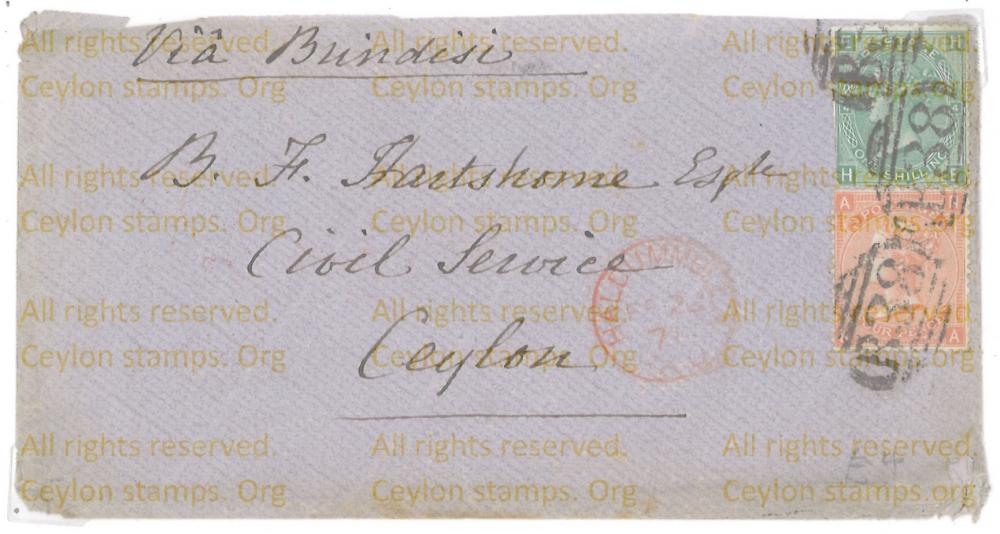 Viâ Brindisi
B. F. Hartshorne Esqre
Civil Service
Ceylon
ONE SHILLING
H
A
A
FE 24
All rights reserved. All rights reserved. All rights reserved.
Ceylon stamps. Org Ceylon stamps. Org Ceylon stamps. Org
All rights reserved. All rights reserved. All rights reserved.
Ceylon stamps. Org Ceylon stamps. Org Ceylon stamps. Org
All rights reserved. All rights reserved. All rights reserved.
Ceylon stamps. Org Ceylon stamps. Org Ceylon stamps. Org
All rights reserved. All rights reserved. All rights reserved.
Ceylon stamps. Org Ceylon stamps. Org Ceylon stamps.org